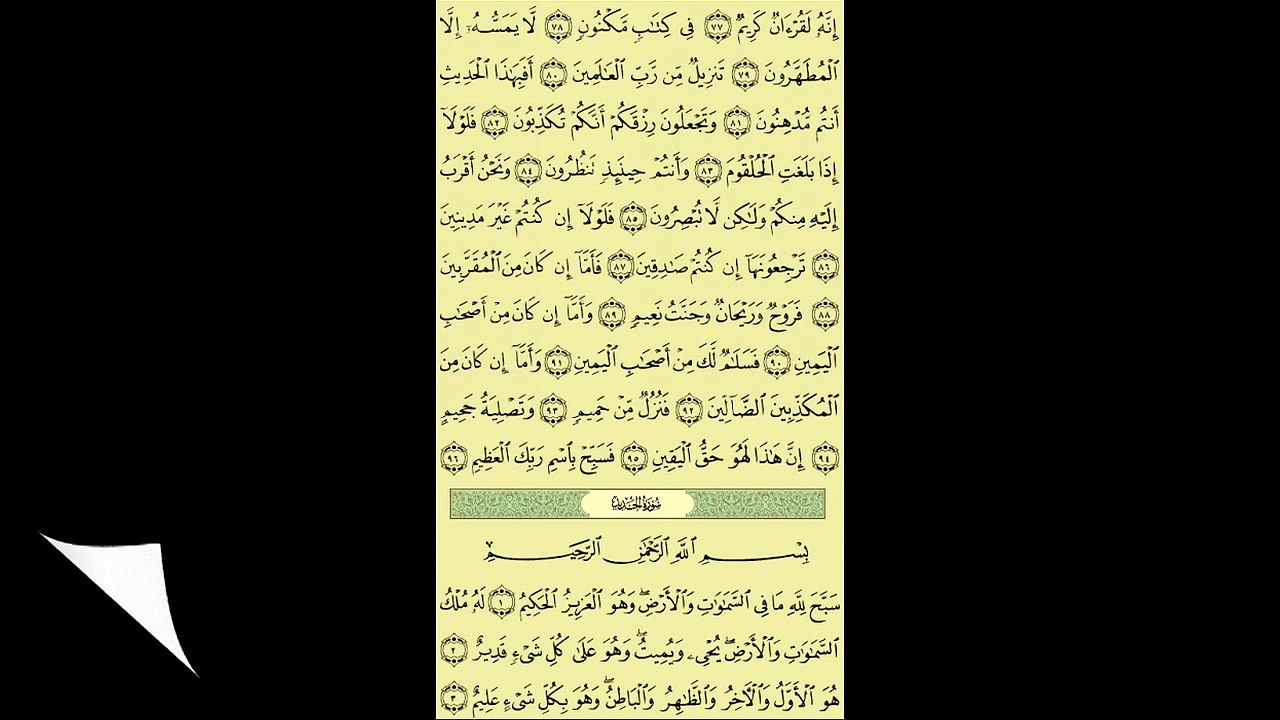 إِنَّهُۥ لَقُرْءَانٌ كَرِيمٌ ٧٧ فِى كِتَٰبٍ مَّكْنُونٍ ٧٨ لَّا يَمَسُّهُۥٓ إِلَّا
ٱلْمُطَهَّرُونَ ٧٩ تَنزِيلٌ مِّن رَّبِّ ٱلْعَٰلَمِينَ ٨٠ أَفَبِهَٰذَا ٱلْحَدِيثِ
أَنتُم مُّدْهِنُونَ ٨١ وَتَجْعَلُونَ رِزْقَكُمْ أَنَّكُمْ تُكَذِّبُونَ ٨٢ فَلَوْلَآ
إِذَا بَلَغَتِ ٱلْحُلْقُومَ ٨٣ وَأَنتُمْ حِينَئِذٍ تَنظُرُونَ ٨٤ وَنَحْنُ أَقْرَبُ
إِلَيْهِ مِنكُمْ وَلَٰكِن لَّا تُبْصِرُونَ ٨٥ فَلَوْلَآ إِن كُنتُمْ غَيْرَ مَدِينِينَ
٨٦ تَرْجِعُونَهَآ إِن كُنتُمْ صَٰدِقِينَ ٨٧ فَأَمَّآ إِن كَانَ مِنَ ٱلْمُقَرَّبِينَ
٨٨ فَرَوْحٌ وَرَيْحَانٌ وَجَنَّتُ نَعِيمٍ ٨٩ وَأَمَّآ إِن كَانَ مِنْ أَصْحَٰبِ
ٱلْيَمِينِ ٩٠ فَسَلَٰمٌ لَّكَ مِنْ أَصْحَٰبِ ٱلْيَمِينِ ٩١ وَأَمَّآ إِن كَانَ مِنَ
ٱلْمُكَذِّبِينَ ٱلضَّآلِّينَ ٩٢ فَنُزُلٌ مِّنْ حَمِيمٍ ٩٣ وَتَصْلِيَةُ جَحِيمٍ
٩٤ إِنَّ هَٰذَا لَهُوَ حَقُّ ٱلْيَقِينِ ٩٥ فَسَبِّحْ بِٱسْمِ رَبِّكَ ٱلْعَظِيمِ ٩٦
سُورَةُ الحَدِيدِ
بِسْمِ ٱللَّهِ ٱلرَّحْمَٰنِ ٱلرَّحِيمِ
سَبَّحَ لِلَّهِ مَا فِى ٱلسَّمَٰوَٰتِ وَٱلْأَرْضِ ۖ وَهُوَ ٱلْعَزِيزُ ٱلْحَكِيمُ ١ لَهُۥ مُلْكُ
ٱلسَّمَٰوَٰتِ وَٱلْأَرْضِ ۖ يُحْىِۦ وَيُمِيتُ ۖ وَهُوَ عَلَىٰ كُلِّ شَىْءٍ قَدِيرٌ ٢
هُوَ ٱلْأَوَّلُ وَٱلْءَاخِرُ وَٱلظَّٰهِرُ وَٱلْبَاطِنُ ۖ وَهُوَ بِكُلِّ شَىْءٍ عَلِيمٌ ٣